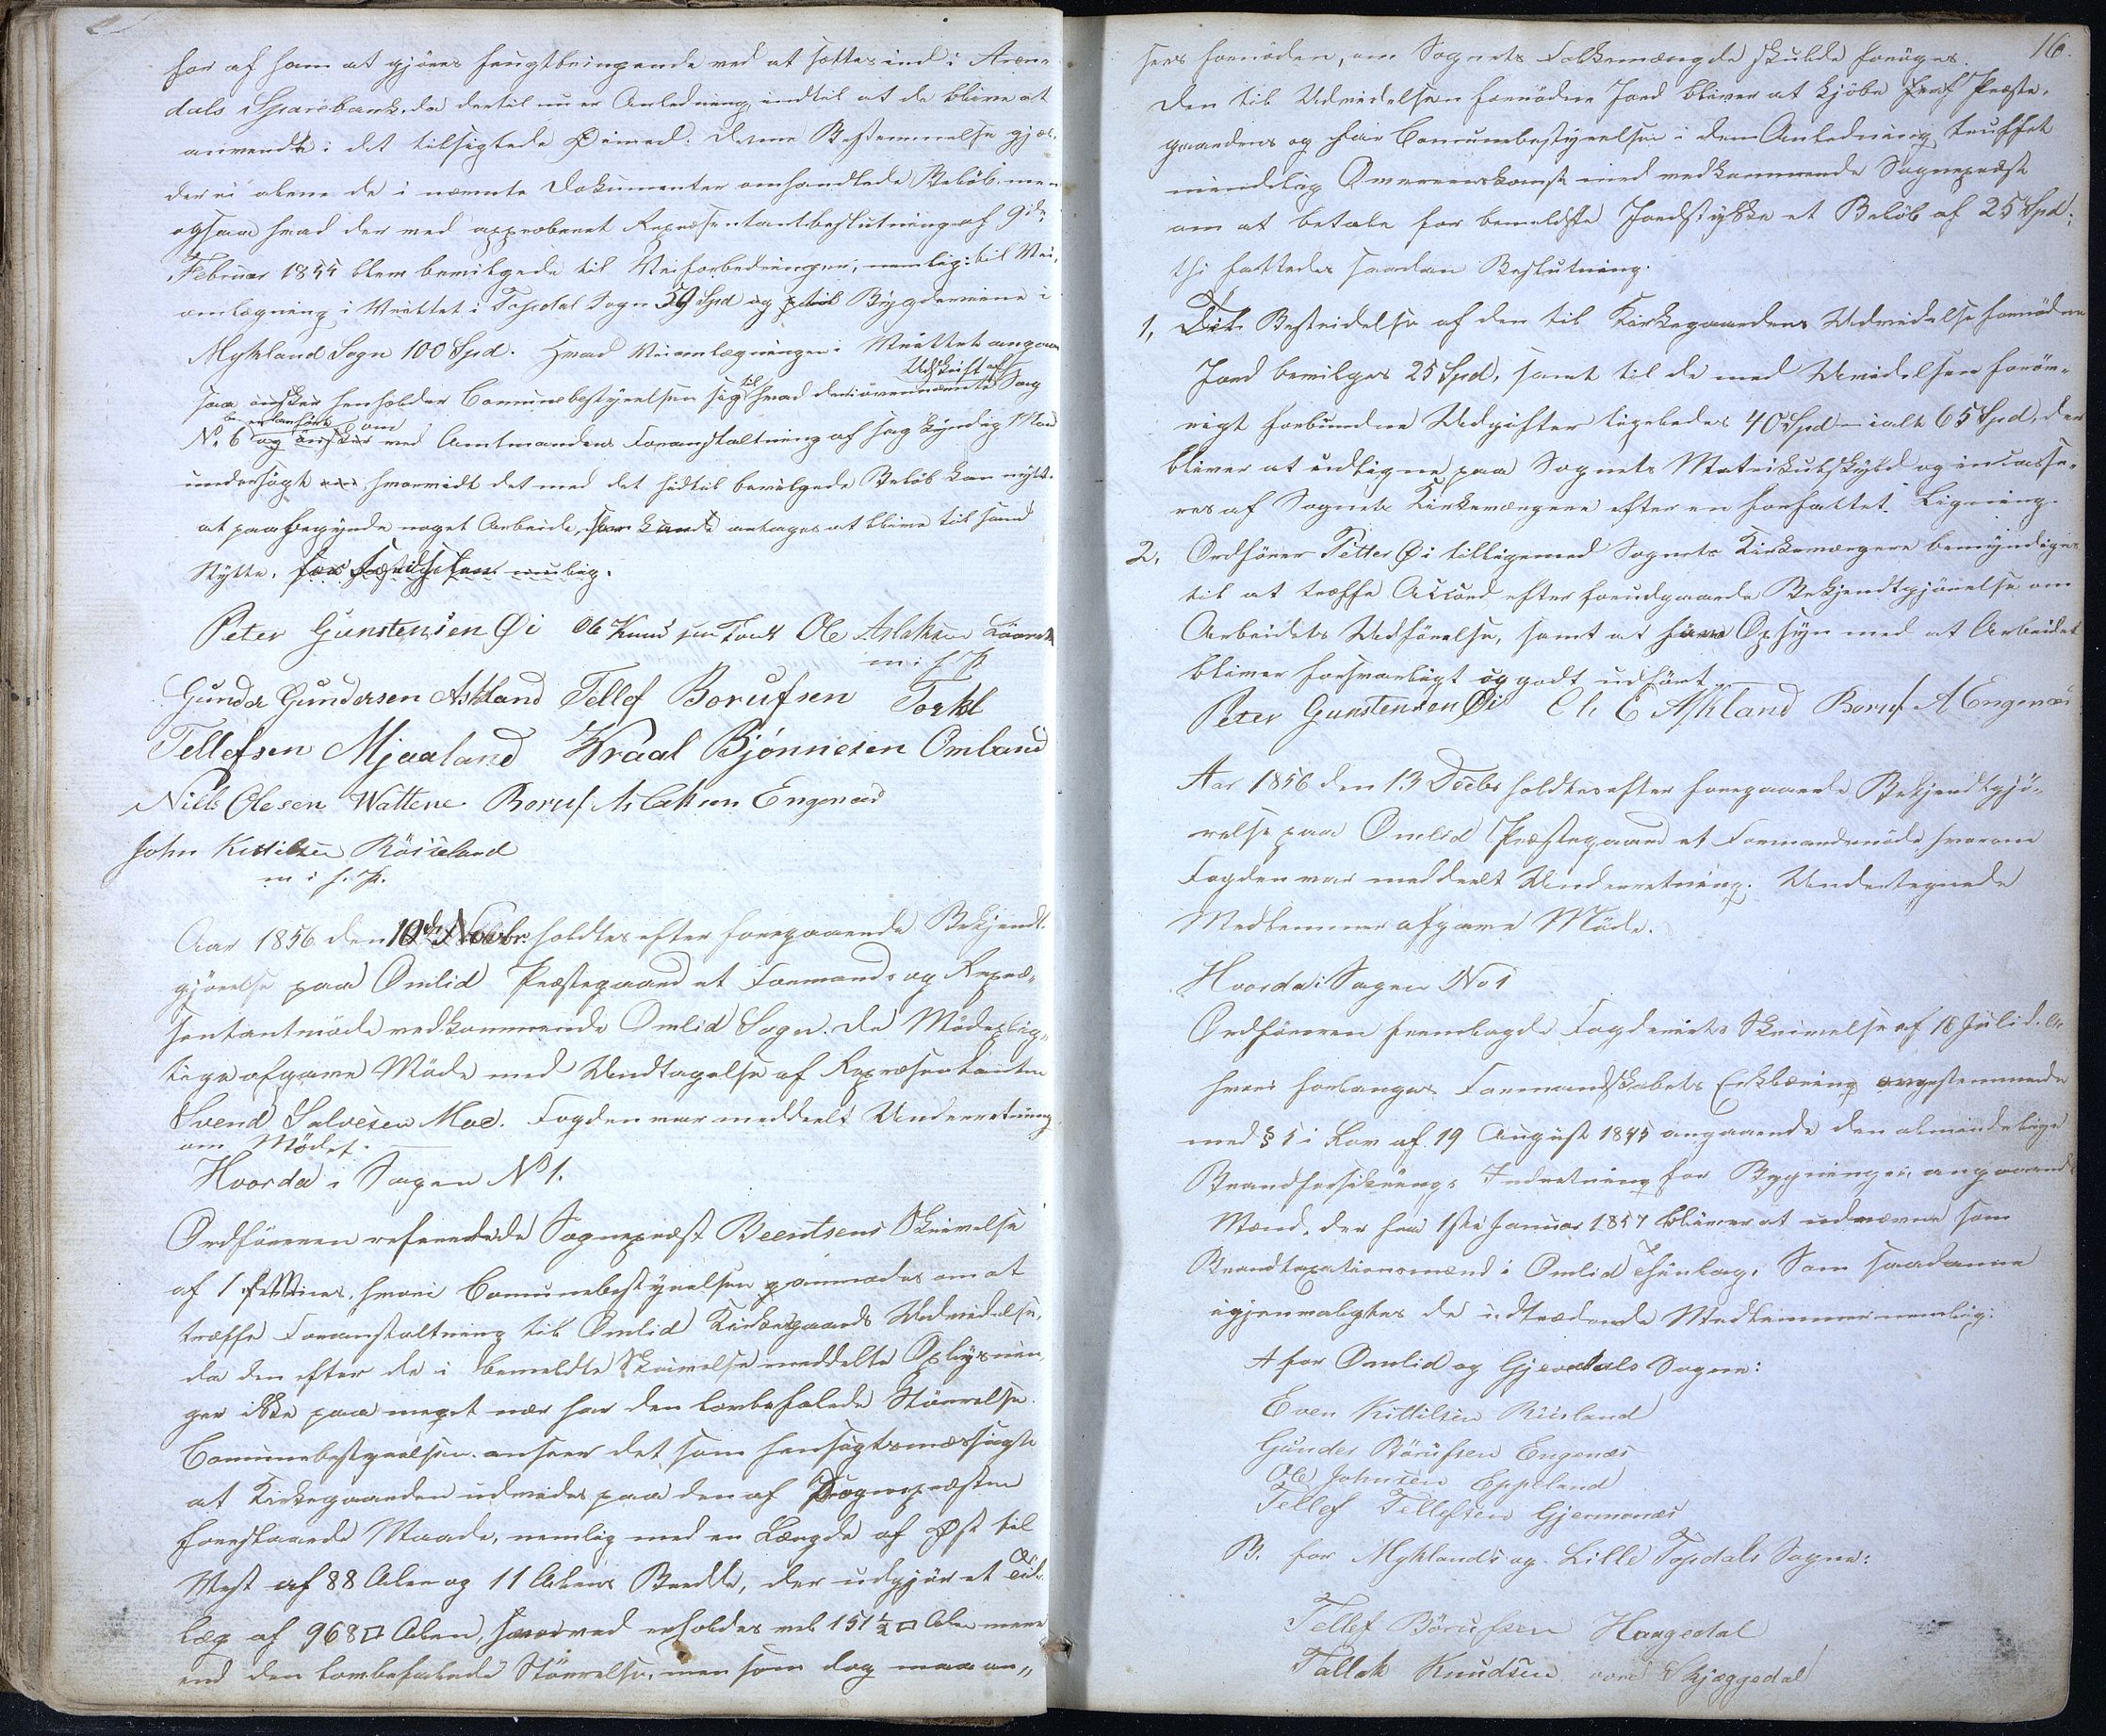 for af ham at gjøres frugtbringende ved at sættes ind i Aren-
dals Sparebank, da dertil nu er Anledning indtil at de blive at
anvendte i det tilsigtede Øimed. Denne Bestemmelse gjæl-
der ei alene de i nævnte Dokumenter omhandlede Beløb, men
ogsaa hvad der ved approberet Repræsentantbeslutning af 9de
Februar 1855 blev bevilgede til Veiforbedringer, nemlig: til Vei-
omlægning i Topdal Sogn 59 Spd og til Bygdeveiene i
Mykland Sogn 100 Spd. Hvad Veiomlægningen i angaar
Udskrift af
saa ønsker henholder Comunebestyrelsen sig til hvad der i ovennævnte Sag
No. 6 og ønsker om ved Amtmandens Foranstaltning af sagkyndig Mand
undersøgt hvorvidt det med det hidtil bevilgede Beløb kan nytte
at paabegynde noget Arbeide, som kunde antages at blive til sand
Nytte, for Færdselen muelig.
Peter Gunstensen Øi Ole Knudsen Ole Aslaksen
m: f. P.
Gunder Gundersen Askland Tellef Borufsen Torkel
Tellefsen Mjaaland Kraal Bjønnesen Omland
Niels Olesen Wattene Boruf Aslaksen Engenæs
John Kittilsen Röiseland
m i f. P.
Aar 1856 den 10de Novbr. holdtes efter foregaaende Bekjendt-
gjørelse paa Omlid Præstegaard et Formands og Repræ-
sentantmøde vedkommende Omlid Sogn. De Mødeplig-
tige afgave Møde med Undtagelse af Repræsentanten
Svend Salvesen Moe. Fogden var meddeelt Underretning
om Mødet.
Hvorda i Sagen No 1.
Ordføreren refererede Sognepræst Beentsens Skrivelse
af 1 f. M., hvori Comunebestyrelsen anmodes om at
træffe Foranstaltning til Omlid Kirkegaards Udvidelse,
da den efter de i bemeldte Skrivelse meddelte Oplysnin-
ger ikke paa meget nær har den lovbefalede Størrelse.
Comunebestyrelsen anseer det som hensigtsmæssigt
at Kirkegaarden udvides paa den af Sognepræsten
foreslaaede Maade, nemlig med en Længde af Øst til
Vest af 88 Alen og 11 Alens Bredde, der udgjør et
læg af 968 □ Alen, hvorved erholdes vel 151½ □ Alen mere
end den lovbefalede Størrelse, men som dog maa an-
16.
sees fornøden, om Sognets Folkemængde skulde forøges.
Den til Udvidelsen fornødne Jord bliver at kjøbe fra Præste-
gaarden og har Comunebestyrelsen i den Anledning truffet
mindelig Overeenskomst med vedkommende Sognepræst
om at betale for bemeldte Jordstykke et Beløb af 25 Spd;
thi fattedes saadan Beslutning.
1, Til Bestridelse af den til Kirkegaardens Udvidelse fornødne
Jord bevilges 25 Spd, samt til de med Udvidelsen forøv-
rigt forbundne Udgifter ligeledes 40 Spd – ialt 65 Spd, der
bliver at udligne paa Sognets Matrikulskyld og incasse-
res af Sognets Kirkeværgere efter en forfattet Ligning.
2. Ordfører Petter Øi tilligemed Sognets Kirkeværgere bemyndiges
til at træffe Accord efter forudgaaende Bekjendtgjørelse om
Arbeidets Udførelse, samt at have Opsyn med at Arbeidet
bliver forsvarligt og godt udført.
Peter Gunstensen Øi Ch. E Askland Boruf A Engenæs
Aar 1856 den 13 Decbr holdtes efter foregaaende Bekjendtgjø-
relse paa Omlid Præstegaard et Formandsmøde hvorom
Fogden var meddeelt Underretning. Undertegnede
Medlemmer afgave Møde.
Hvorda i Sagen No 1
Ordføreren fremlagde Fogderiets Skrivelse af 18 Juli d. A.
hvori forlanges Formandskabets Erklæring overeenstemmende
med § 5 i Lov af 19 August 1845 angaaende den almindelige
Brandforsikrings Indretning for Bygninger, angaaende
Mænd, der fra 1ste Januar 1857 bliver at udnævne som
Brandtaxationsmænd i Omlid Thinlag. Som saadanne
igjenvalgtes de udtrædende Medlemmer nemlig:
A for Omlid og Gjevedals Sogne:
Even Kittilsen Riisland
Gunder Börufsen Engenæs
Ole Johnsen Eppeland
Tellef Tellefsen Gjermenæs
B. for Myklands og Lille Topdals Sogne:
Tellef Börufsen Haugedal
Tallak Knudsen Skjæggedal